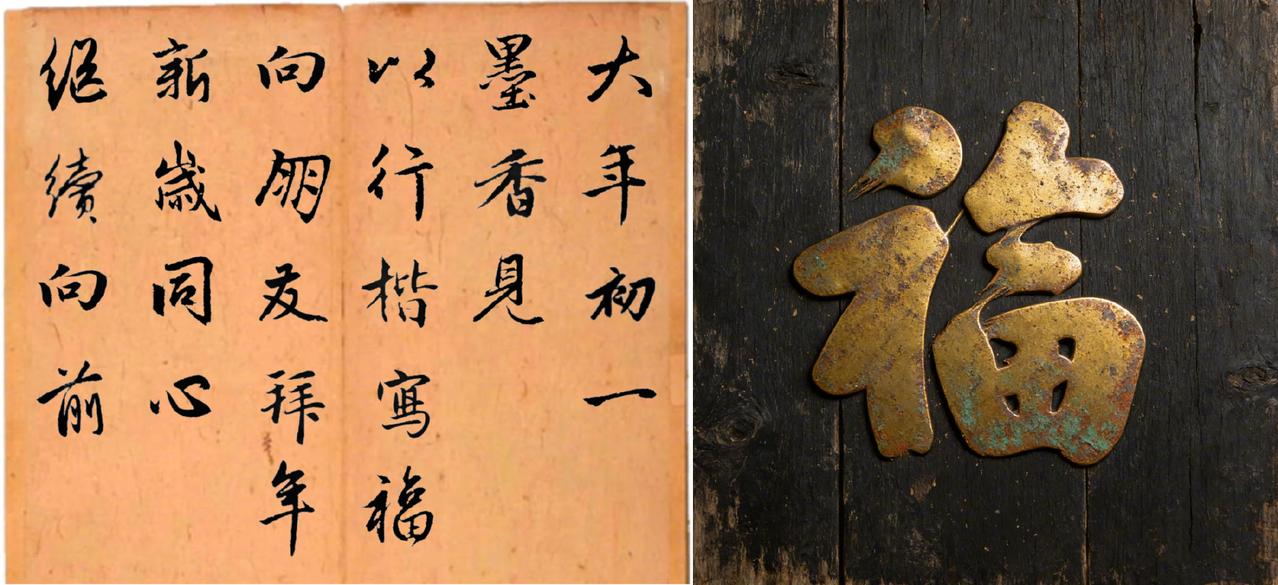 大年初一
墨香見
以行楷寫福
向朋友拜年
新歲同心
繼續向前
福